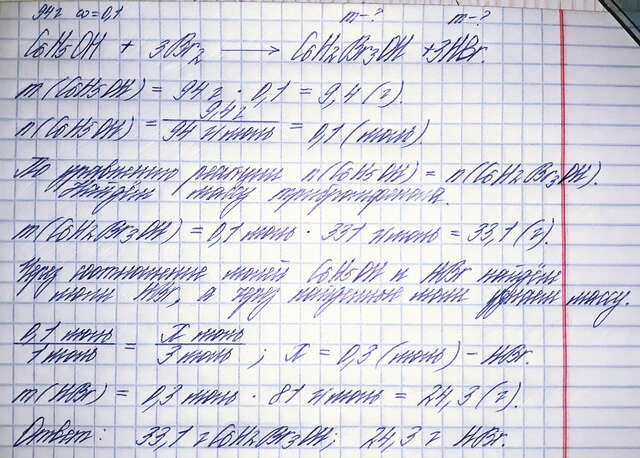 94г ω=0,1 m-? m-?
C6H5OH + 3Br2 ⟶ C6H2Br3OH + 3HBr.
m(C6H5OH) = 94г · 0,1 = 9,4 (г).
n(C6H5OH) = 9,4г / 94 г/моль = 0,1 (моль).
По уравнению реакции n(C6H5OH) = n(C6H2Br3OH).
Найдём массу трибромфенола.
m(C6H2Br3OH) = 0,1 моль · 331 г/моль = 33,1 (г).
Через соотношение молей C6H5OH и HBr найдём
моли HBr, а через найденные моли узнаем массу.
0,1 моль / 1 моль = x моль / 3 моль ; x = 0,3 (моль) - HBr.
m(HBr) = 0,3 моль · 81 г/моль = 24,3 (г).
Ответ: 33,1 г C6H2Br3OH; 24,3 г HBr.